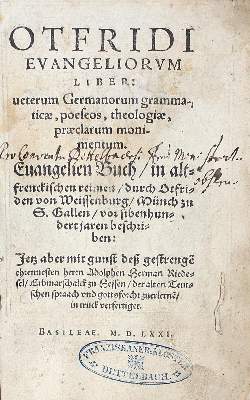 OTFRIDI
EVANGELIORVM
LIBER:
ueterum Germanorum gramma-
ticæ, poeseos, theologiæ,
præclarum moni-
mentum.
Evangelien Buch / in alt-
frenckischen reimen / durch Otfri-
den von Weissenburg / Münch zu
S. Gallen / vor sibenhun-
dert jaren beschri-
ben:
Jetz aber mit gunst deß gestrengē
ehrenvesten herrn Adolphen Herman Riede-
sel / Erbmarschalck zu Hessen / der alten Teut-
schen spraach vnd gottsforcht zuerlernē /
in truck verfertiget.
BASILEAE, M. D. LXXI.
FRANZISKANER-KLOSTER
DETTELBACH